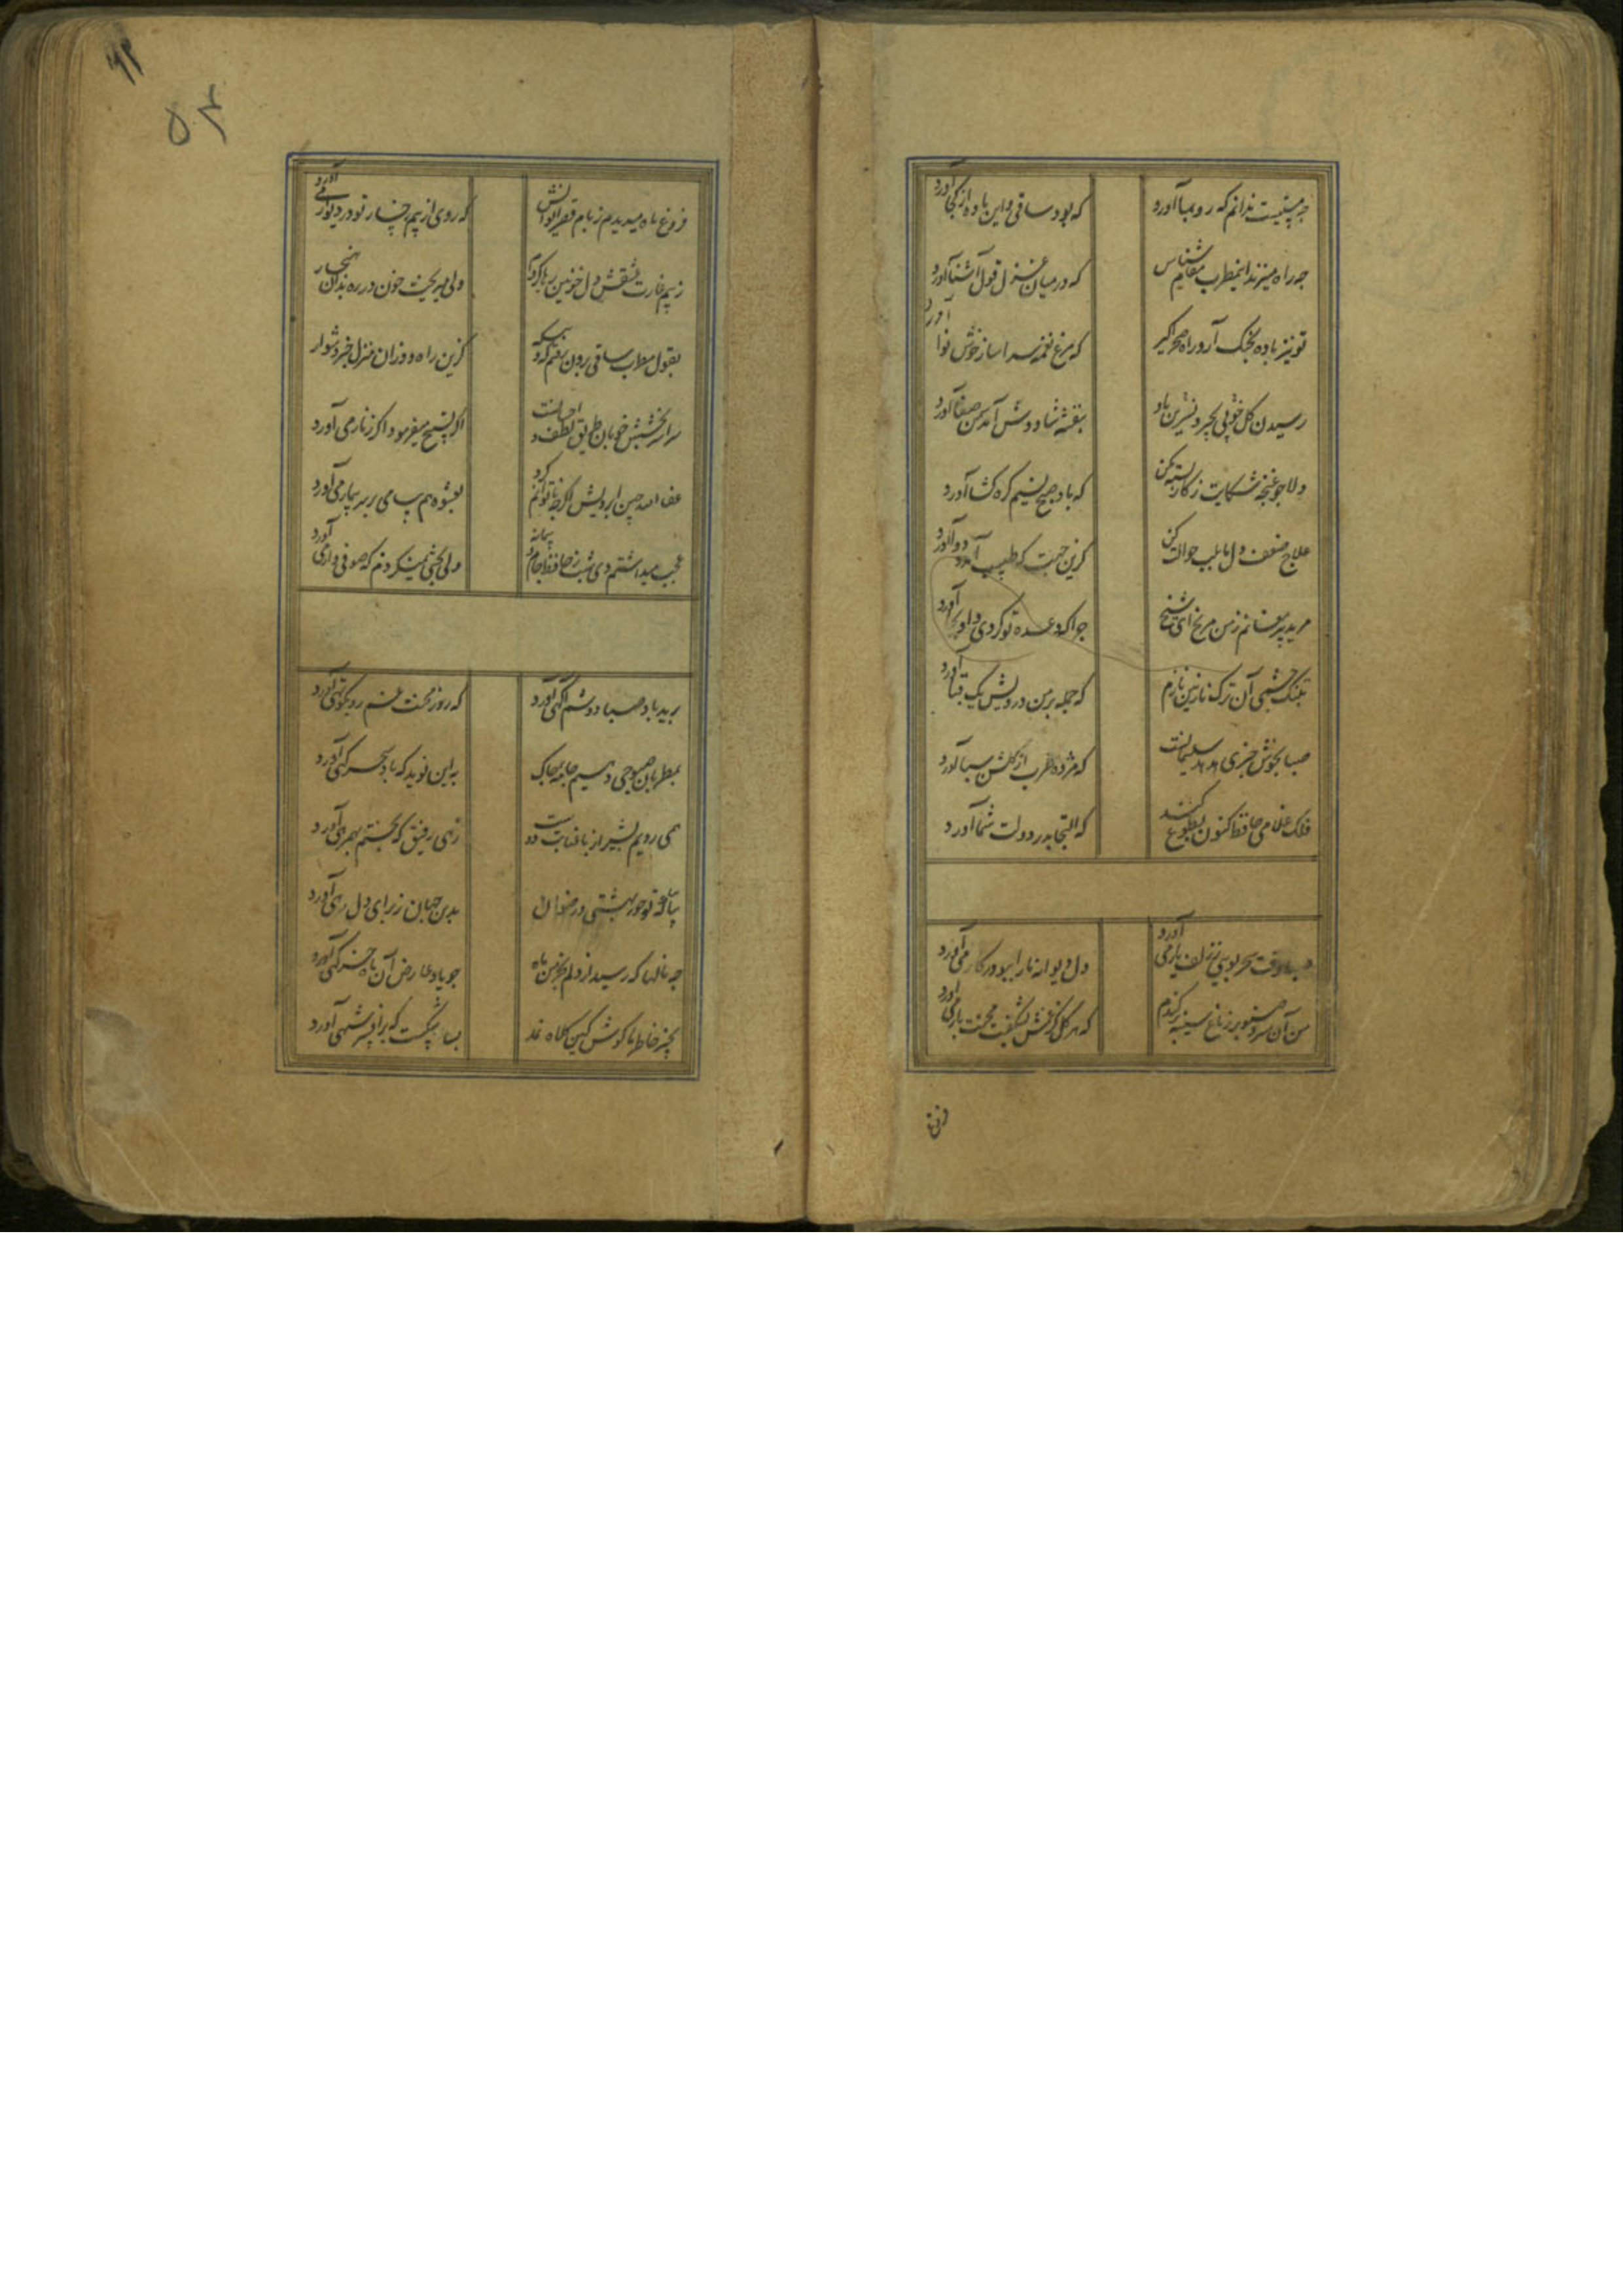 چه مستیست ندانم که رو بما آورد
که بود ساقی و این باده از کجا آورد
چه راه میزند این مطرب مقام شناس
که در میان غزل قول آشنا آورد
تو نیز باده بچنک آر و راه صحرا گیر
که مرغ نغمه سرا ساز خوش نوا آورد
رسیدن گل و نسرین بخیر و خوبی باد
بنفشه شاد و کش آمد سمن صفا آورد
دلا چو غنچه شکایت ز کار بسته مکن
که باد صبح نسیم گره کشا آورد
علاج ضعف دل ما بلب حوالت کن
کزین جهت که طبیب آمد و دوا آورد
مرید پیر مغانم ز من مرنج ای شیخ
چرا که وعده تو کردی و او بجا آورد
بتنک چشمی آن ترک نازنین نازم
که حمله بر من درویش یک قبا آورد
صبا بخوش خبری هدهد سلیمانست
که مژده طرب از کلشن سبا آورد
فلک غلامی حافظ کنون بطوع کند
که التجا بدر دولت شما آورد
صبا وقت سحر بویی ز زلف یار می آورد
دل دیوانه ما را ببو در کار می آورد
من آن سرو صنوبر ز باغ سینه برکندم
که هر کل کز غمش بشکفت محنت بار می آورد
فروغ
فروغ ماه میدیدم ز بام قصر ایوانش
که روی از بیم رخسار تو در دیوار می آورد
ز بیم غارت عشقش دل خونین رها کردم
ولی میریخت خون در ره بدان هنجار
بقول مطرب و ساقی برون رفتم که و بیکه
کزین راه و وزان منزل خبر دشوار
سراسر بخشش خوبان طریق لطف و احسانست
اگر تسبیح میفرمود اگر زنار می آورد
عفا الله چین ابرویش اگرچه ناتوانم کرد
بعشوه هم پیامی بر سر بیمار می آورد
عجب میداشتم دی شب ز حافظ جام و پیمانه
ولی بحثی نمیکردم که صوفی وار می آورد
برید باد صبا دوشم آگهی آورد
که روز محنت غم رو بکوتهی آورد
بمطربان صبوحی دهیم جامه چاک
باین نوید که باد سحرگهی آورد
همی رویم بشیراز با عنایت دوست
زهی رفیق که بختم بهمرهی آورد
بیا بیا که تو حور بهشتی و رضوان
بدین جهان ز برای دل رهی آورد
چه نالها که رسید از دلم بخرمن ماه
چو یاد عارض آن ماه خرکهی آورد
بجبر خاطر ما کوش کین کلاه نمد
بسا شکست که بر افسر شهی آورد